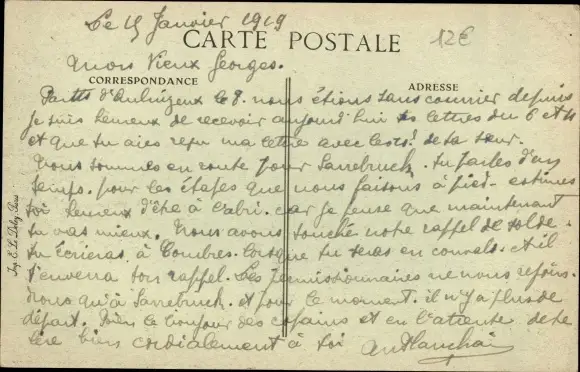 Le 15 Janvier 1919
CARTE POSTALE
12€
Mon Vieux Georges.
CORRESPONDANCE
ADRESSE
Partis d' le 8. nous étions sans courrier depuis
je suis heureux de recevoir aujourd'hui tes lettres du 6 et 11
et que tu aies reçu ma lettre avec de ta sœur.
Nous sommes en route pour Sarrebruck. tu parles d'un
temps. pour les étapes que nous faisons à pied. estimes
toi heureux d'être à l'abri. car je pense que maintenant
tu vas mieux. Nous avons touché notre rappel de solde.
tu écriras à Combres. lorsque tu seras en convals. et il
t'enverra ton rappel. Les permissionnaires ne nous rejoin.
dront qu'à Sarrebruck. et pour le moment. il n'y a plus de
départ. Bien le bonjour des copains et en l'attente de te
lire bien cordialement à toi
Imp. E. Le Deley, Paris